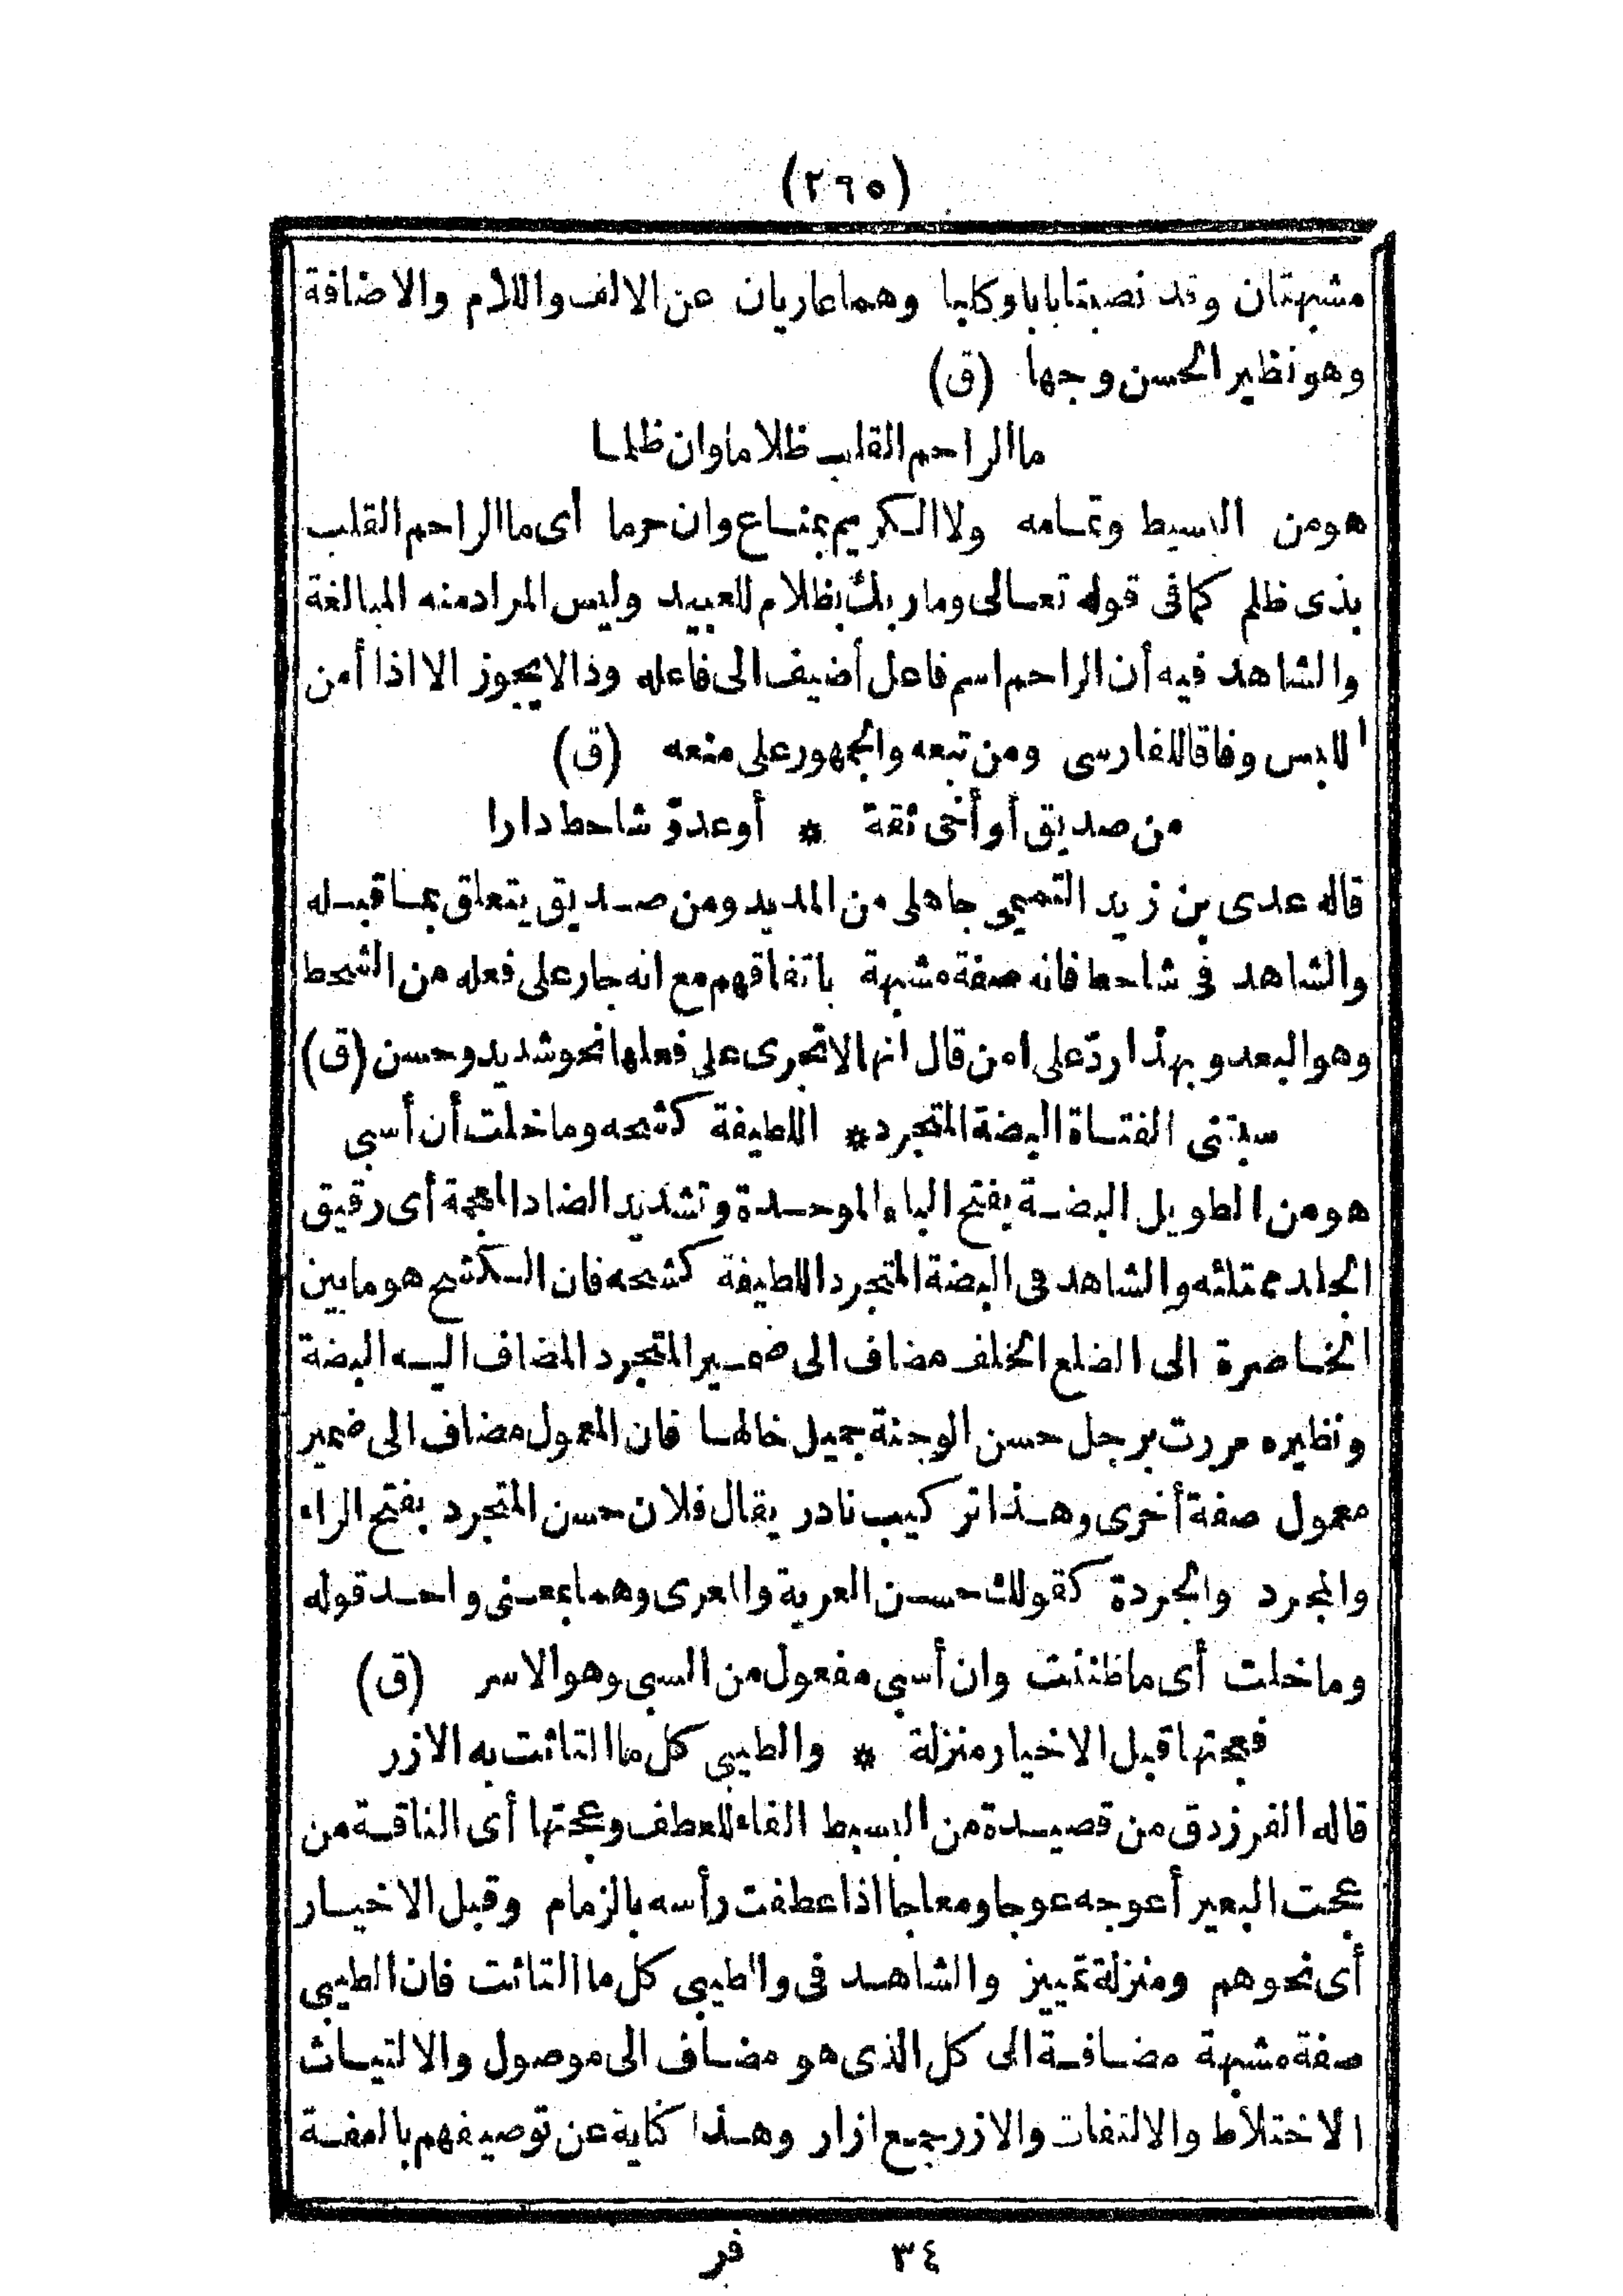 (٢٩٥)
مشبهتان وقد نصبتا بابا وكلبا وهما عاريان عن الالف واللام والاضافة
وهو نظير الحسن وجها (ق)
ما الراحم القلب ظلاما وان ظلما
هو من البسيط وتمامه ولا الكريم بمناع وان حرما أى ما الراحم القلب
بذى ظلم كما فى قوله تعالى وما ربك بظلام للعبيد وليس المراد منه المبالغة
والشاهد فيه أن الراحم اسم فاعل أضيف الى فاعله وذا لا يجوز الا اذا أمن
اللبس وفاقا للفارسى ومن تبعه والجمهور على منعه (ق)
من صديق أو أخى ثقة * أو عدوّ شاحط دارا
قاله عدى بن زيد التميمى جاهلى من المديد ومن صديق يتعلق بما قبله
والشاهد فى شاحط فانه صفة مشبهة باتفاقهم مع انه جار على فعله من الشحط
وهو البعد وبهذا ردّ على من قال انها لا تجرى على فعلها نحو شديد وحسن (ق)
سبتنى الفتاة البضة المتجرد * اللطيفة كشحه وما خلت أن أسبى
هو من الطويل البضة بفتح الباء الموحدة وتشديد الضاد المعجمة أى رقيق
الجلد ممتلئه والشاهد فى البضة المتجرد اللطيفة كشحه فان الكشح هو ما بين
الخاصرة الى الضلع الخلف مضاف الى ضمير المتجرد المضاف اليه البضة
ونظيره مررت برجل حسن الوجنة جميل خالها فان المعمول مضاف الى ضمير
معمول صفة أخرى وهذا تركيب نادر يقال فلان حسن المتجرد بفتح الراء
والمجرد والجردة كقولك حسن العرية والمعرى وهما بمعنى واحد قوله
وما خلت أى ما ظننت وان أسبى مفعول من السبى وهو الاسر (ق)
فعجتها قبل الاخيار منزلة * والطيبى كل ما التاثت به الازر
قاله الفرزدق من قصيدة من البسيط الفاء للعطف وعجتها أى الناقة من
عجت البعير أعوجه عوجا ومعاجا اذا عطفت رأسه بالزمام وقبل الاخيار
أى نحوهم ومنزلة تمييز والشاهد فى والطيبى كل ما التاثت فان الطيبى
صفة مشبهة مضافة الى كل الذى هو مضاف الى موصول والالتياث
الاختلاط والالتفات والازر جمع ازار وهذا كناية عن توصيفهم بالعفة
٣٤ فر